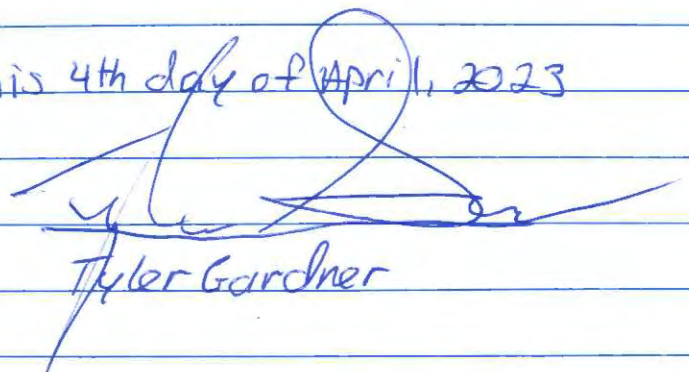 is 4th day of April, 2023
Tyler Gardner